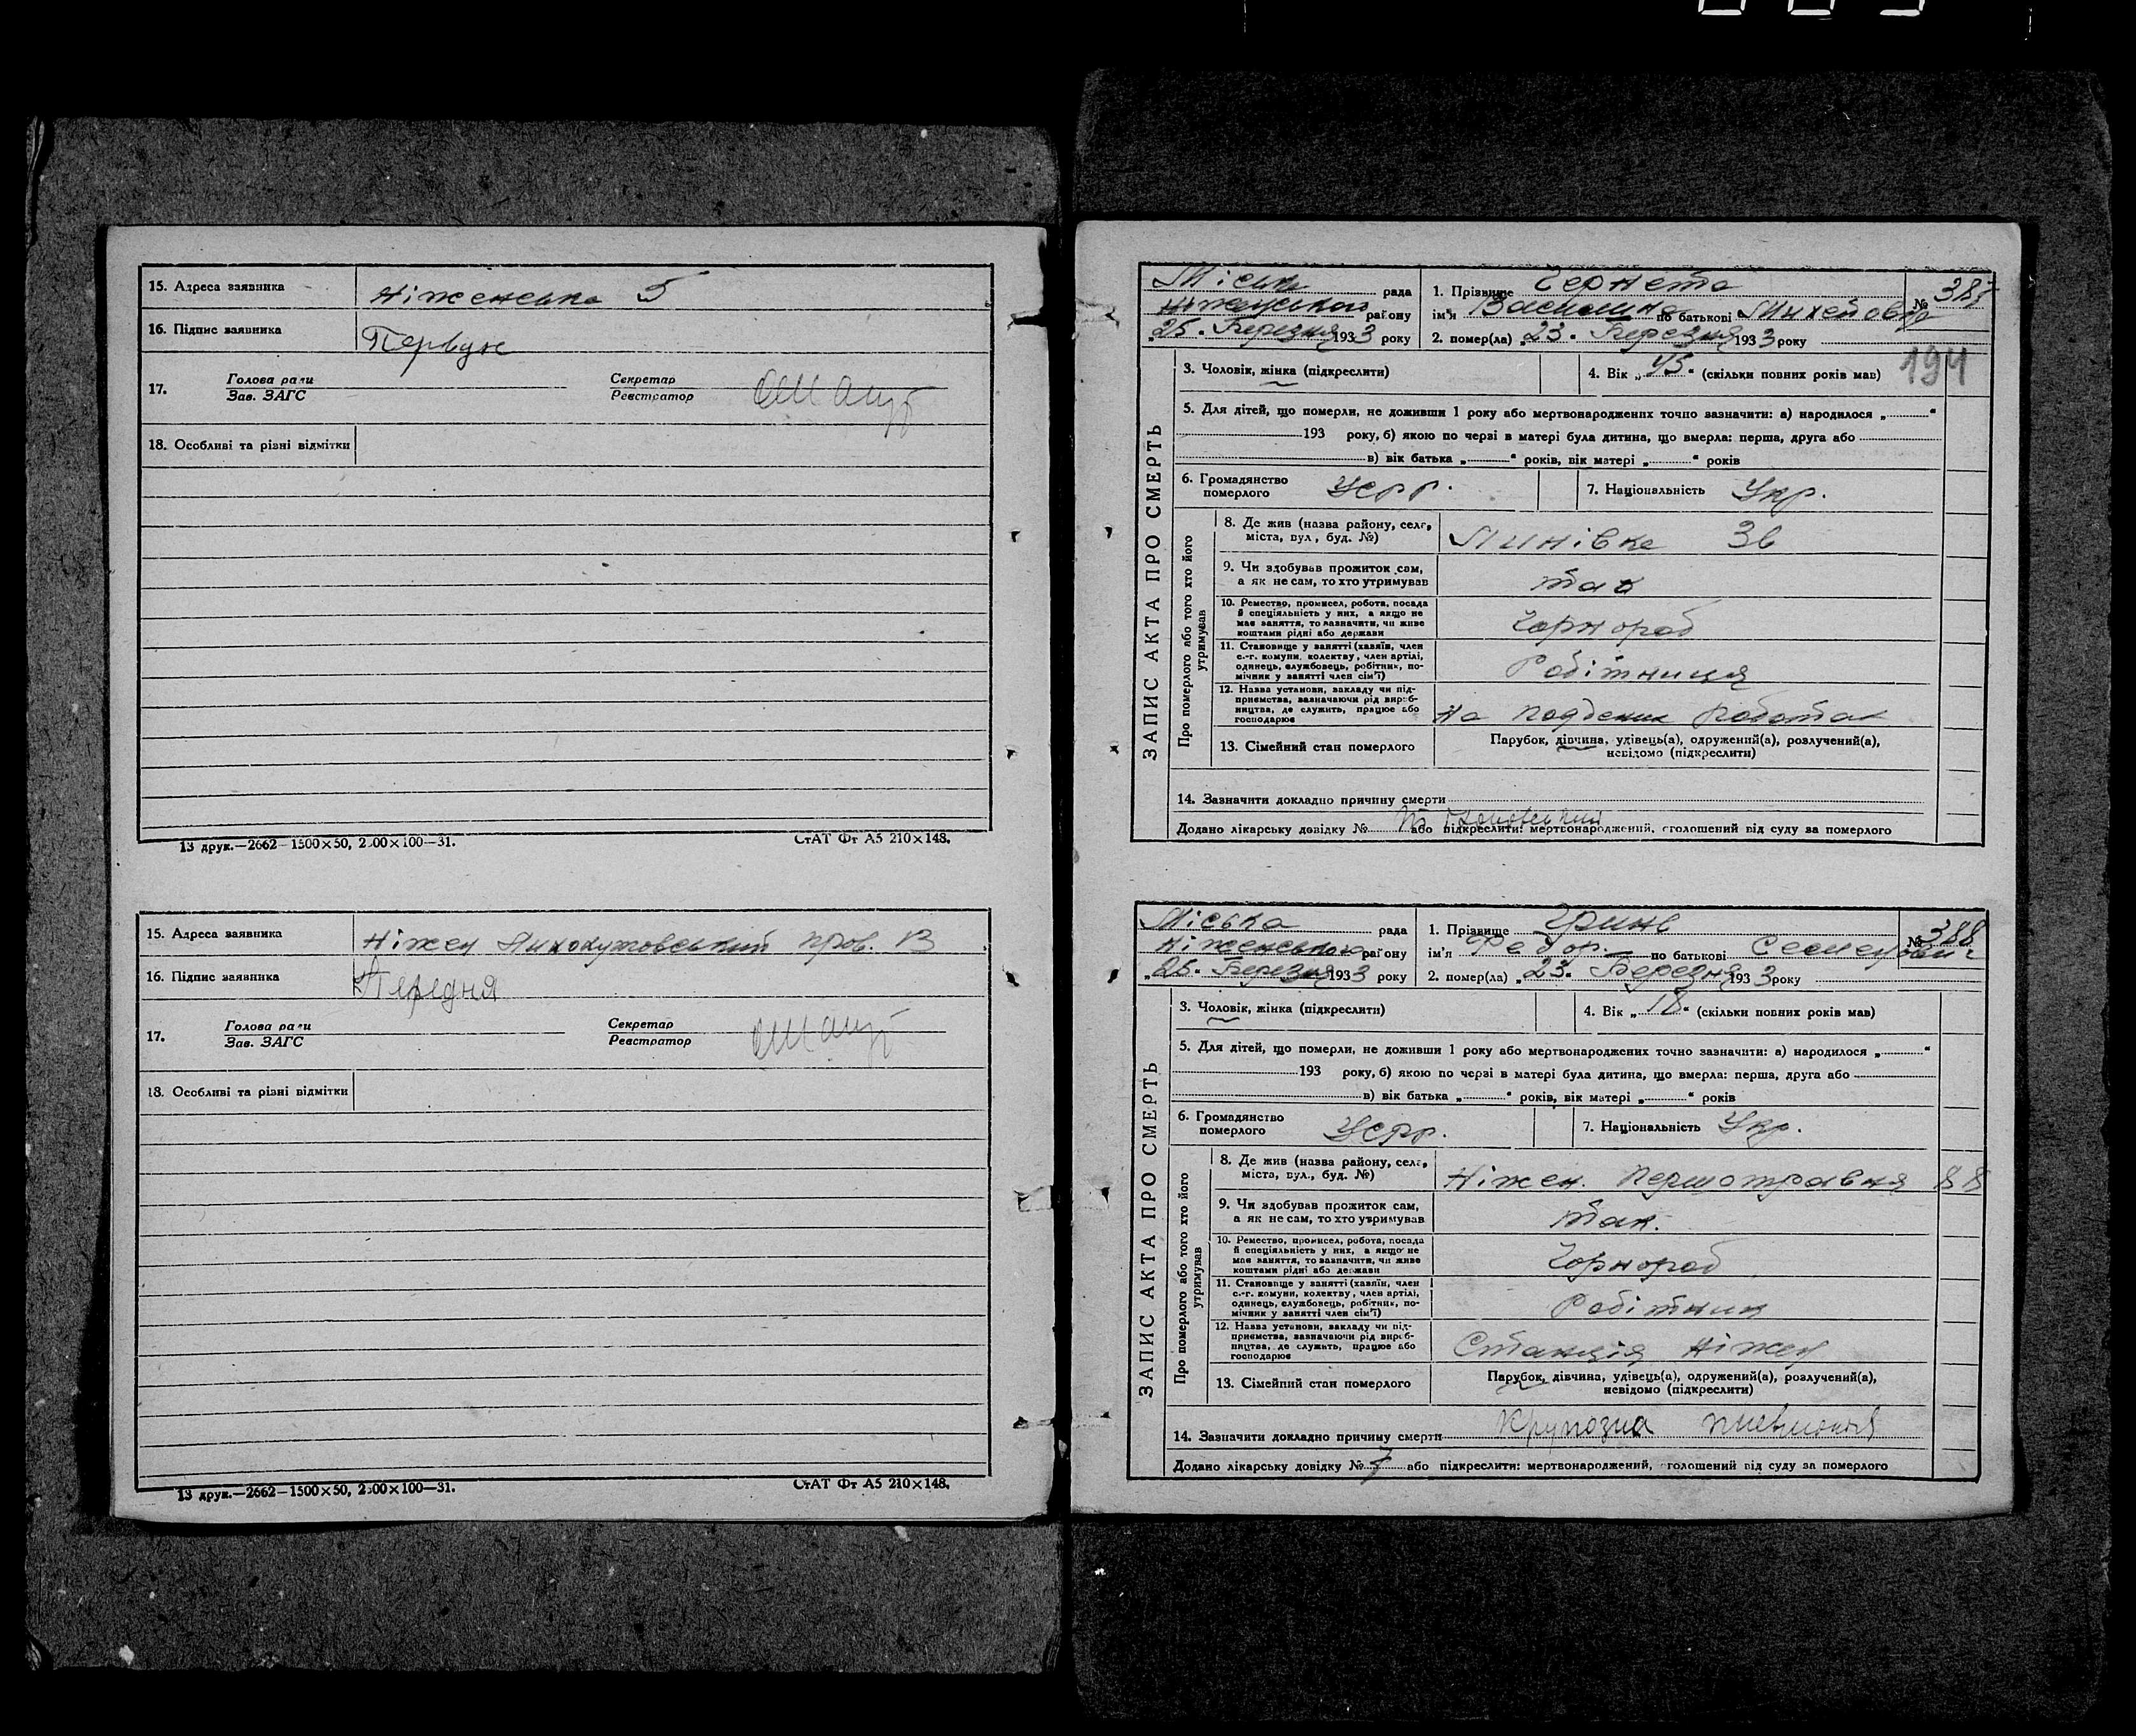 15. Адреса заявника Ніженська 5
16. Підпис заявника Первун
17. Голова ради Секретар
Зав. ЗАГС Реєстратор
18. Особливі та різні відмітки
13 друк.—2662—1500×50, 2500×100—31. СтАТ Фт А5 210×148.
15. Адреса заявника Ніжен пров. 13
16. Підпис заявника Передня
17. Голова ради Секретар
Зав. ЗАГС Реєстратор
18. Особливі та різні відмітки
13 друк.—2662—1500×50, 2500×100—31. СтАТ Фт А5 210×148.
ЗАПИС АКТА ПРО СМЕРТЬ
Міська рада
Ніженського району
„25. Березня 1933 року
1. Прізвище Чернета № 387
ім'я Василина по батькові Михайловна
2. помер(ла) „23. Березня 1933 року
194
3. Чоловік, жінка (підкреслити)
4. Вік „45“ (скільки повних років мав)
5. Для дітей, що померли, не доживши 1 року або мертвонароджених точно зазначити: а) народилося „ “
193 року, б) якою по черзі в матері була дитина, що вмерла: перша, друга або
в) вік батька „ “ років, вік матері „ “ років
6. Громадянство померлого УСРР.
7. Національність Укр.
Про померлого або того хто його утримував
8. Де жив (назва району, села,
міста, вул., буд. №) 36
9. Чи здобував прожиток сам,
а як не сам, то хто утримував так
10. Ремество, промисел, робота, посада
й спеціяльність у них, а якщо не
має заняття, то зазначити, чи живе
коштами рідні або держави Чорнороб
11. Становище у занятті (хазяїн, член
с.-г. комуни, колективу, член артілі,
одинець, службовець, робітник, по-
мічник у занятті член сім'ї) Робітниця
12. Назва установи, закладу чи під-
приємства, зазначаючи рід вироб-
ництва, де служить, працює або
господарює на поденних роботах
13. Сімейний стан померлого Парубок, дівчина, удівець(а), одружений(а), розлучений(а),
невідомо (підкреслити)
14. Зазначити докладно причину смерти
Додано лікарську довідку № або підкреслити: мертвонароджений, оголошений від суду за померлого
ЗАПИС АКТА ПРО СМЕРТЬ
Міська рада
Ніженського району
„25. Березня 1933 року
1. Прізвище Гринь № 388
ім'я Федор. по батькові Семенович
2. помер(ла) „23. Березня 1933 року
3. Чоловік, жінка (підкреслити)
4. Вік „18“ (скільки повних років мав)
5. Для дітей, що померли, не доживши 1 року або мертвонароджених точно зазначити: а) народилося „ “
193 року, б) якою по черзі в матері була дитина, що вмерла: перша, друга або
в) вік батька „ “ років, вік матері „ “ років
6. Громадянство померлого УСРР.
7. Національність Укр.
Про померлого або того хто його утримував
8. Де жив (назва району, села,
міста, вул., буд. №) Ніжен. Першотравня 88
9. Чи здобував прожиток сам,
а як не сам, то хто утримував так.
10. Ремество, промисел, робота, посада
й спеціяльність у них, а якщо не
має заняття, то зазначити, чи живе
коштами рідні або держави Чорнороб
11. Становище у занятті (хазяїн, член
с.-г. комуни, колективу, член артілі,
одинець, службовець, робітник, по-
мічник у занятті член сім'ї) Робітник
12. Назва установи, закладу чи під-
приємства, зазначаючи рід вироб-
ництва, де служить, працює або
господарює Станція Ніжен
13. Сімейний стан померлого Парубок, дівчина, удівець(а), одружений(а), розлучений(а),
невідомо (підкреслити)
14. Зазначити докладно причину смерти Крупозна пневмонія
Додано лікарську довідку № 7 або підкреслити: мертвонароджений, оголошений від суду за померлого